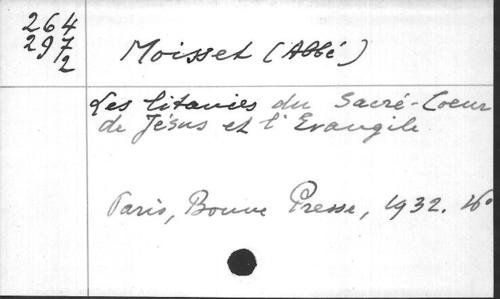 264
297
2
Moisset (Abbé)
Les litanies du Sacré-Coeur
de Jésus et l'Evangile
Paris, Bonne Presse, 1932. 16°